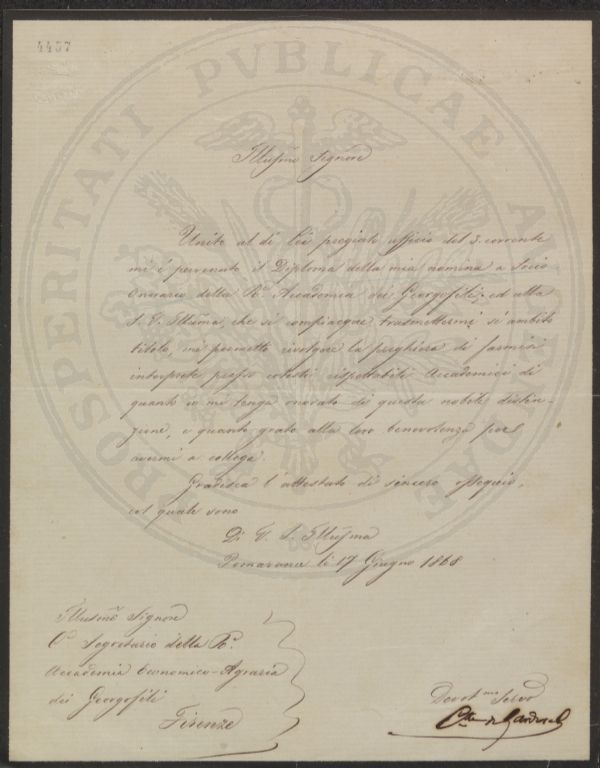 4437
PROSPERITATI PVBLICAE AVGENDAE
Illusmo Signore
Unito al di Lei pregiato ufficio del 3. corrente
mi è pervenuto il Diploma della mia nomina a Socio
Onorario della Ra. Accademia dei Georgofili; ed alla
S. V. Illma, che si compiacque trasmettermi sì ambito
titolo, mi permetto rivolgere la preghiera di farmisi
interprete presso cotesti rispettabili Accademici di
quanto io mi tenga onorato di questa nobile distin-
zione, e quanto grato alla loro benevolenza per
avermi a collega.
Gradisca l'attestato di sincero ossequio,
col quale sono
Di V. S. Illusma
Pomarance li 17 Giugno 1868
Illusmo Signore
Segretario della Ra.
Accademia Economico-Agraria
dei Georgofili
Firenze
Devotmo Servo